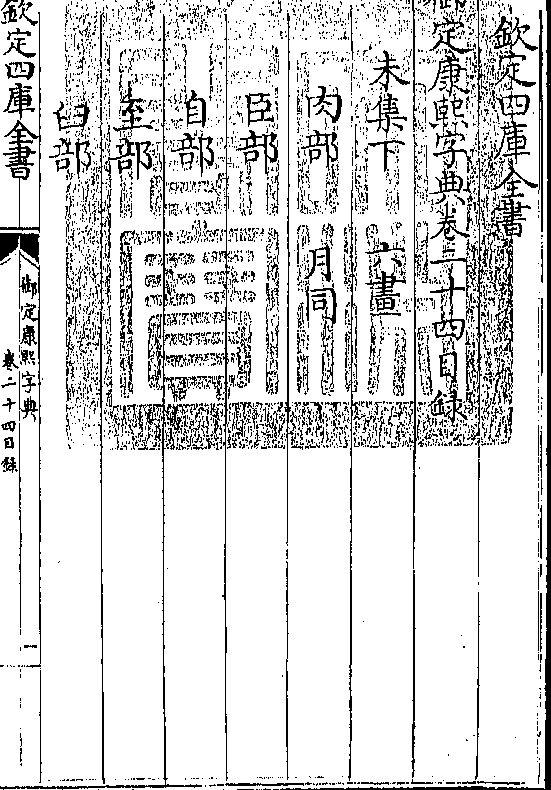 欽定四庫全書
御定康熙字典卷二十四目録
未集下　六畫
肉部　月同
臣部
自部
至部
臼部
欽定四庫全書
御定康熙字典
卷二十四目録
一